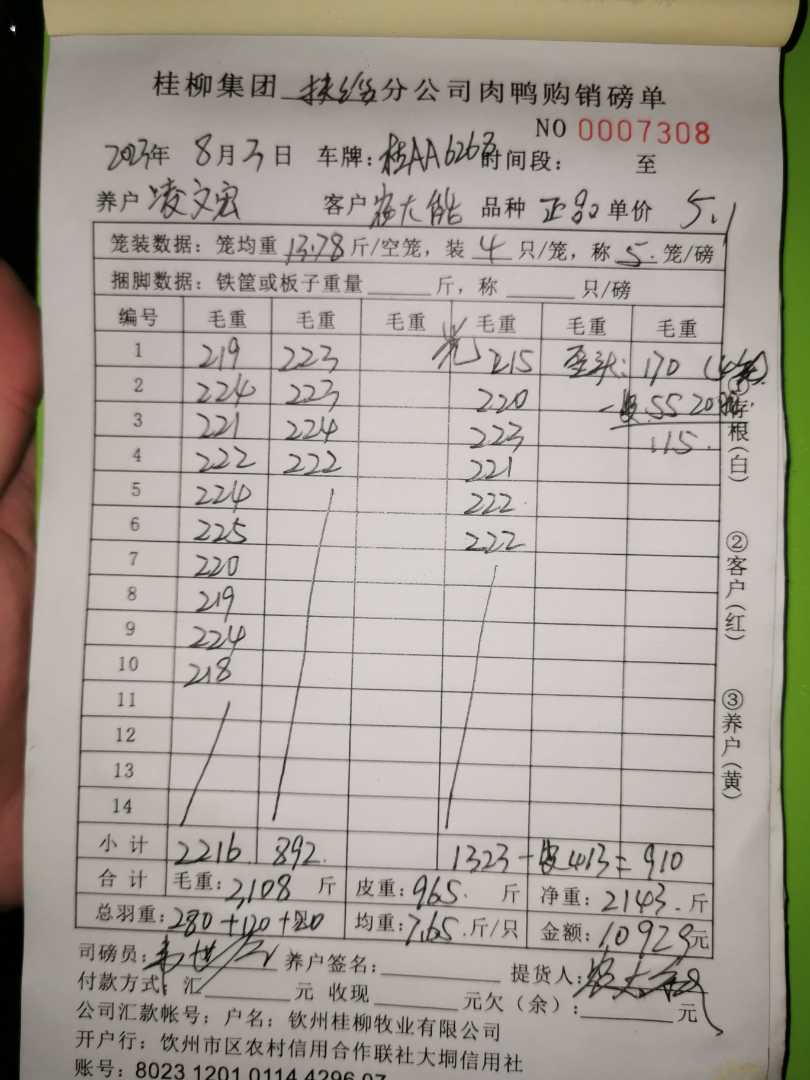 桂柳集团 扶绥 分公司肉鸭购销磅单
NO 0007308
2023年 8月3日 车牌: 桂AA626 时间段: 至
养户 凌文宏 客户 大能 品种 正品 单价 5.1
笼装数据: 笼均重 13.78 斤/空笼, 装 4 只/笼, 称 5. 笼/磅
捆脚数据: 铁筐或板子重量 斤, 称 只/磅
编号 毛重 毛重 毛重 毛重 毛重 毛重
1 219 223 215 170
2 224 223 220 55 20
3 221 224 223 115.
4 222 222 221
5 224 222
6 225 222
7 220
8 219
9 224
10 218
11
12
13
14
小计 2216 892 1323 - 413 = 910
合计 毛重: 3108 斤 皮重: 965. 斤 净重: 2143. 斤
总羽重: 280+ 均重: 7.65. 斤/只 金额: 10929元
司磅员: 养户签名: 提货人:
付款方式: 汇 元 收现 元欠(余): 元
公司汇款帐号: 户名: 钦州桂柳牧业有限公司
开户行: 钦州市区农村信用合作联社大垌信用社
账号: 8023 1201 0114 4296 07
①存根(白)
②客户(红)
③养户(黄)